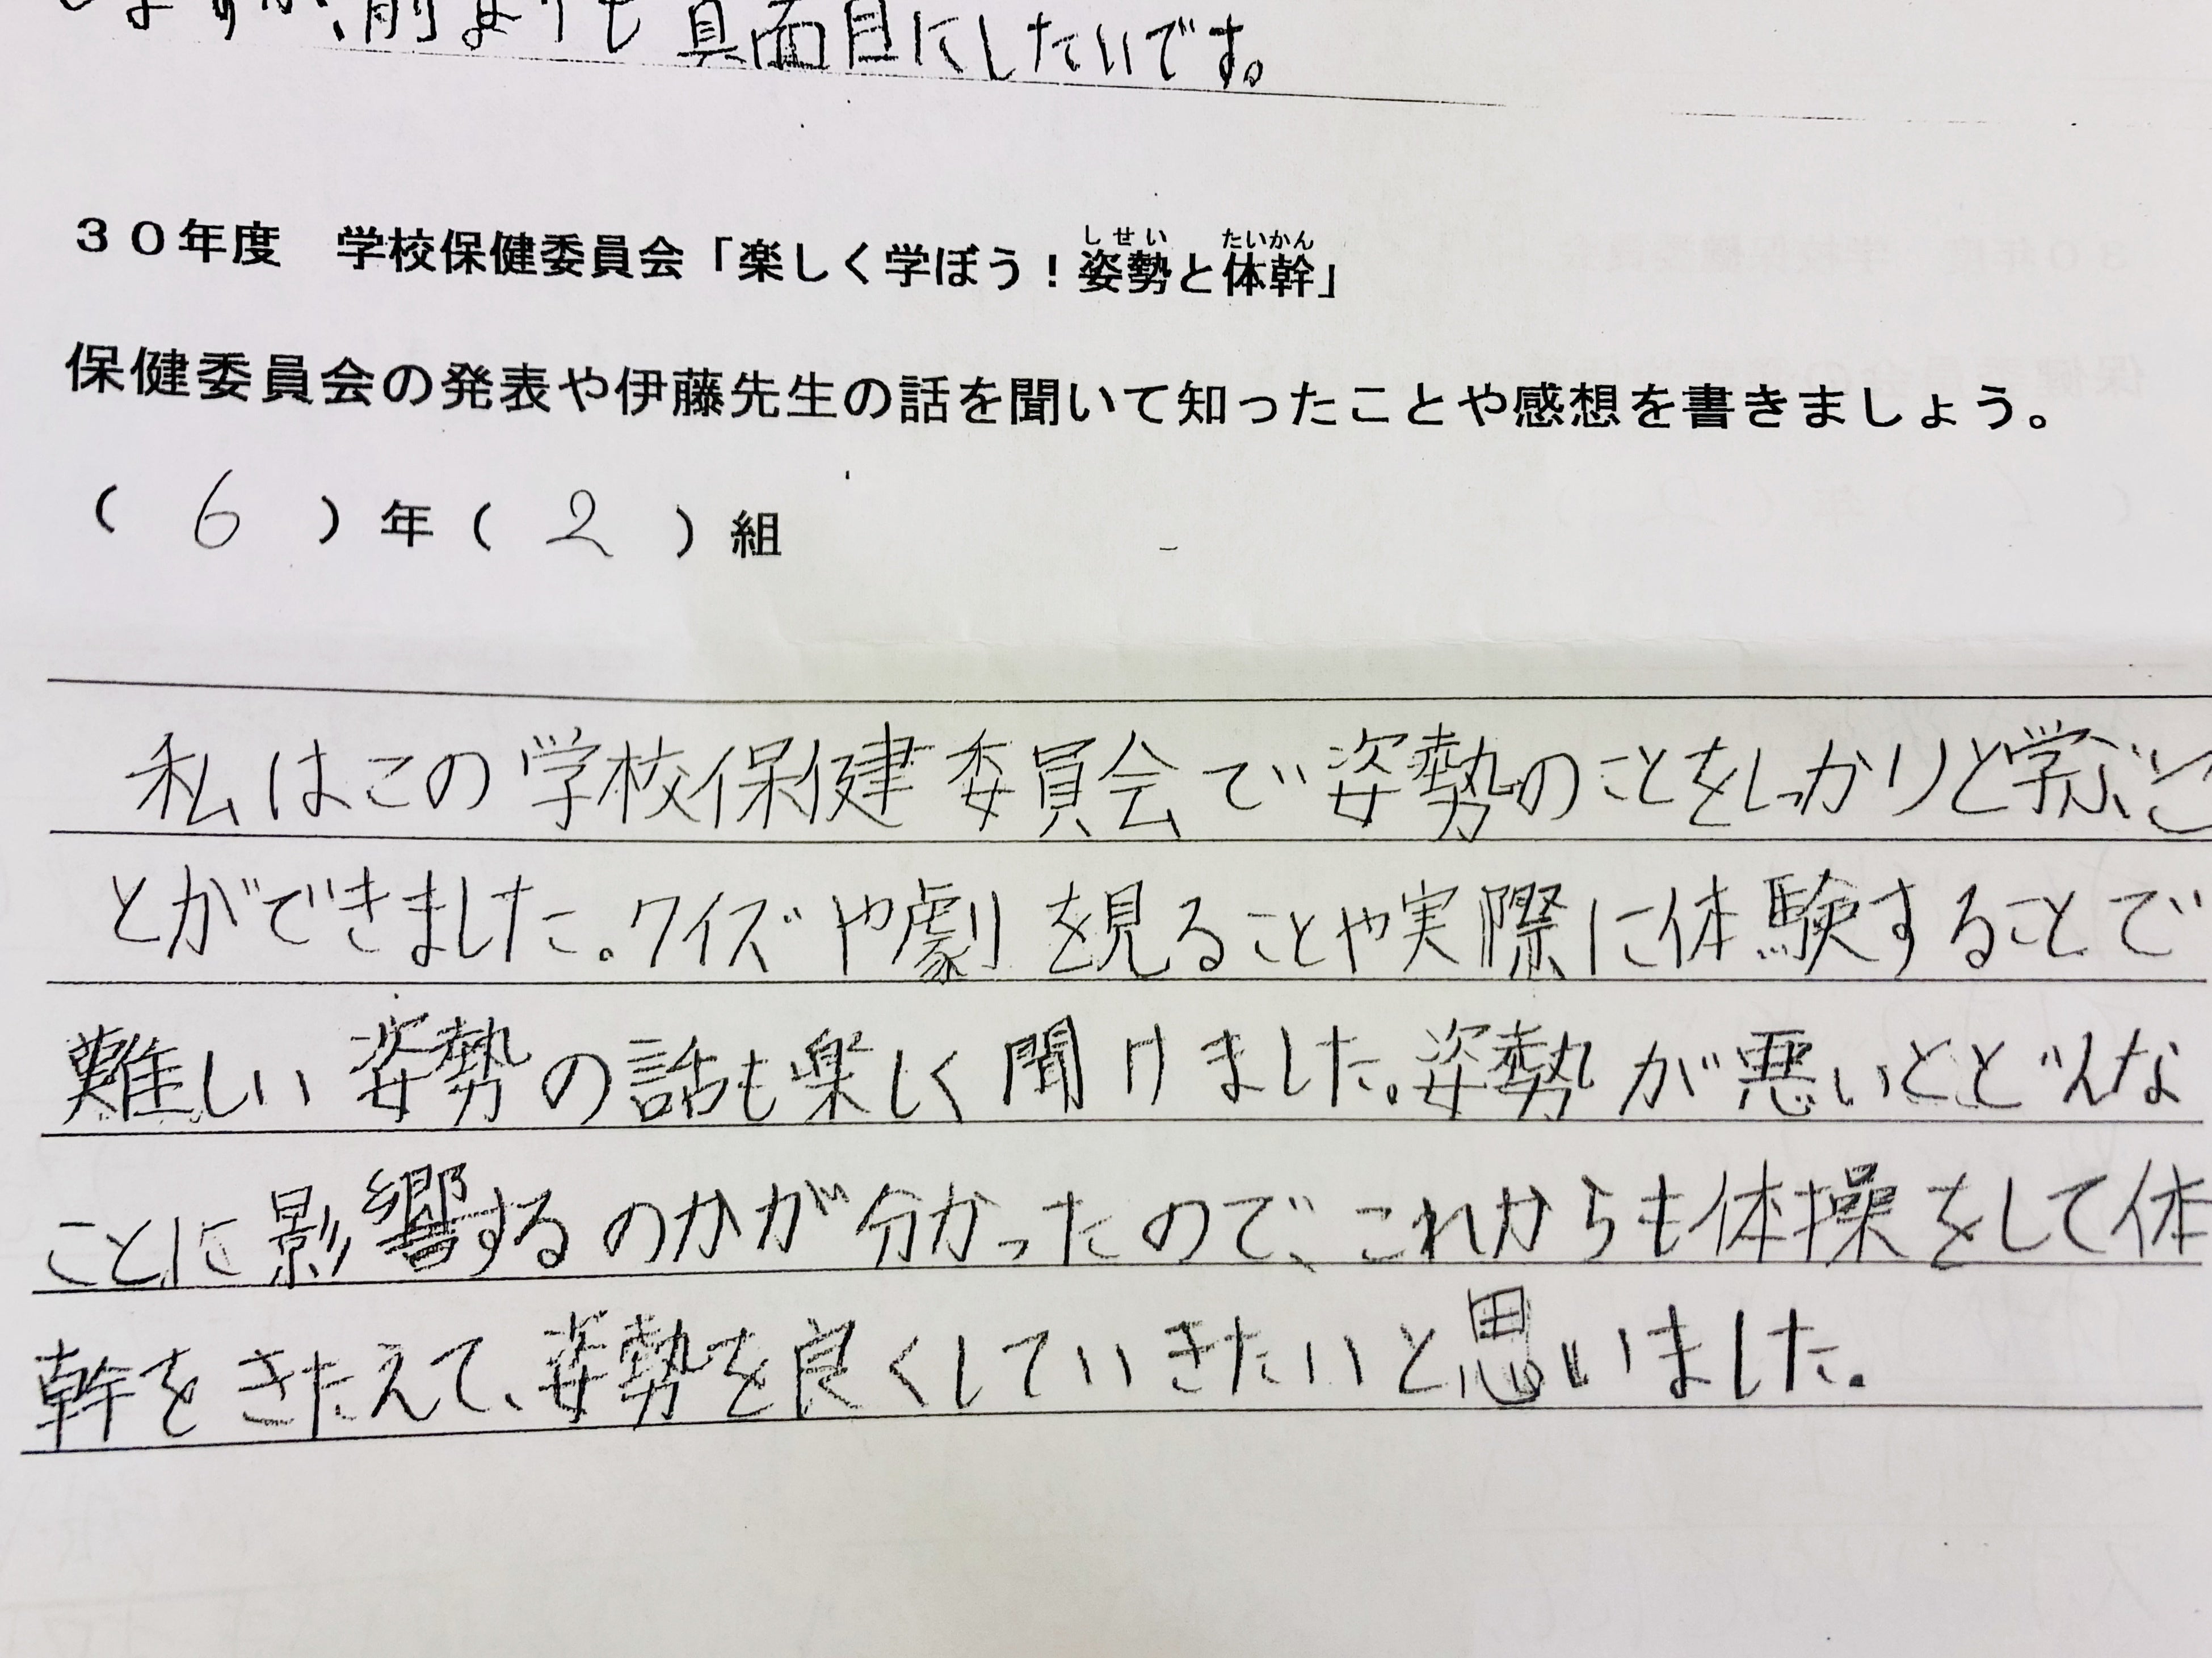 ますが、前よりも真面目にしたいです。
３０年度　学校保健委員会「楽しく学ぼう！姿勢と体幹」
しせい　たいかん
保健委員会の発表や伊藤先生の話を聞いて知ったことや感想を書きましょう。
（　6　）年（　2　）組
私はこの学校保健委員会で姿勢のことをしっかりと学ぶこ
とができました。クイズや劇を見ることや実際に体験することで
難しい姿勢の話も楽しく聞けました。姿勢が悪いとどんな
ことに影響するのかが分かったので、これからも体操をして体
幹をきたえて、姿勢を良くしていきたいと思いました。